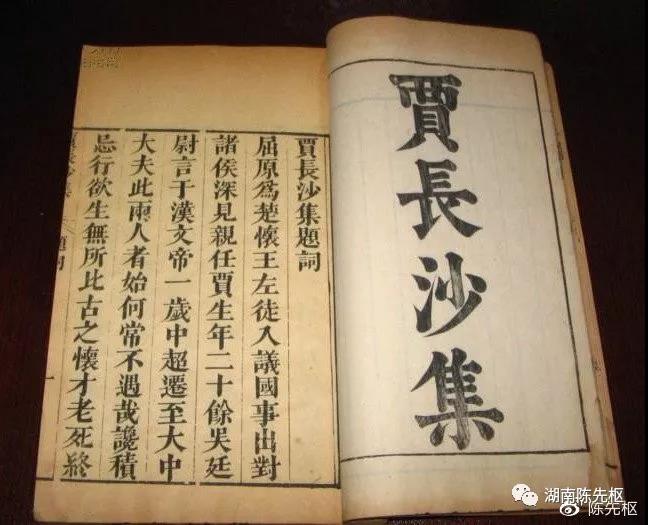 賈長沙集
賈長沙集題詞
屈原爲楚懷王左徒入議國事出對
諸侯深見親任賈生年二十餘吳廷
尉言于漢文帝一歲中超遷至大中
大夫此兩人者始何常不遇哉讒積
忌行欲生無所比古之懷才老死終
湖南陈先枢
陈先枢